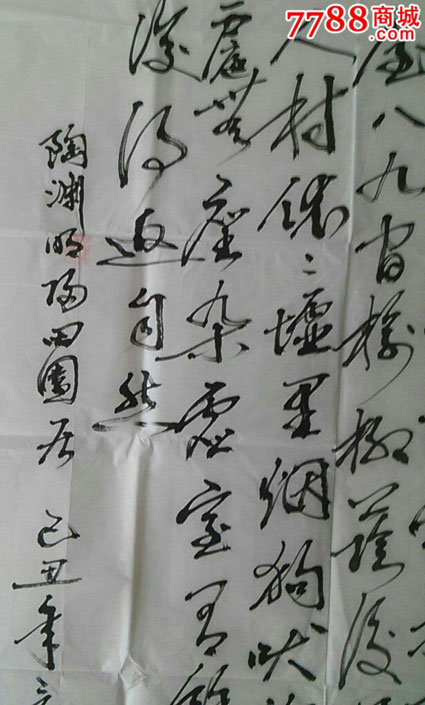 7788商城
.com
屋八九間榆柳蔭後
人村依〻墟里烟狗吠
庭無塵杂虚室有餘
復得返自然
陶渊明歸田園居 己丑年